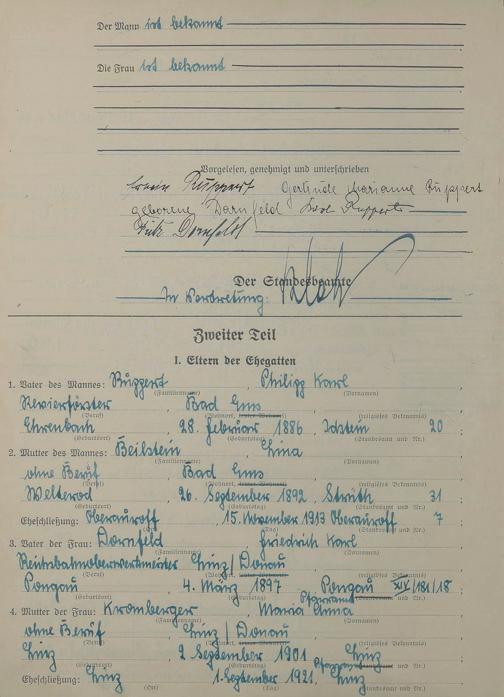 Der Mann ist bekannt
Die Frau ist bekannt
Vorgelesen, genehmigt und unterschrieben
Erwin Ruppert Gertrude Marianne Ruppert
geborene Darnfeld Karl Ruppert
Fritz Dornfeld
Der Standesbeamte
In Vertretung:
Zweiter Teil
I. Eltern der Ehegatten
1. Vater des Mannes: Ruppert , Philipp Karl
(Familienname) (Vornamen)
Revierförster Bad Ems
(Beruf) (Wohnort, letzter Wohnort) (religiöses Bekenntnis)
Ehrenbach , 28. Februar 1886 , Idstein 20
(Geburtsort) (Geburtstag) (Standesamt und Nr.)
2. Mutter des Mannes: Beilstein , Lina
(Familienname) (Vornamen)
ohne Beruf Bad Ems
(Beruf) (Wohnort, letzter Wohnort) (religiöses Bekenntnis)
Welterod , 26. September 1892 , Strüth 31
(Geburtsort) (Geburtstag) (Standesamt und Nr.)
Eheschließung: Oberauroff , 15. November 1913 Oberauroff 7
(Ort) (Tag) (Standesamt und Nr.)
3. Vater der Frau: Dornfeld , Friedrich Karl
(Familienname) (Vornamen)
Reichsbahnoberwerkmeister Linz/Donau
(Beruf) (Wohnort, letzter Wohnort) (religiöses Bekenntnis)
Pongau , 4. März 1897 , Pongau XIV/181/18
(Geburtsort) (Geburtstag) (Standesamt und Nr.)
4. Mutter der Frau: Kromberger , Pfarramt Maria Anna
(Familienname) (Vornamen)
ohne Beruf Linz/Donau
(Beruf) (Wohnort, letzter Wohnort) (religiöses Bekenntnis)
Linz , 2. September 1901 , Linz
(Geburtsort) (Geburtstag) (Standesamt und Nr.)
Eheschließung: Linz , 1. September 1921, Pfarramt Linz
(Ort) (Tag) (Standesamt und Nr.)